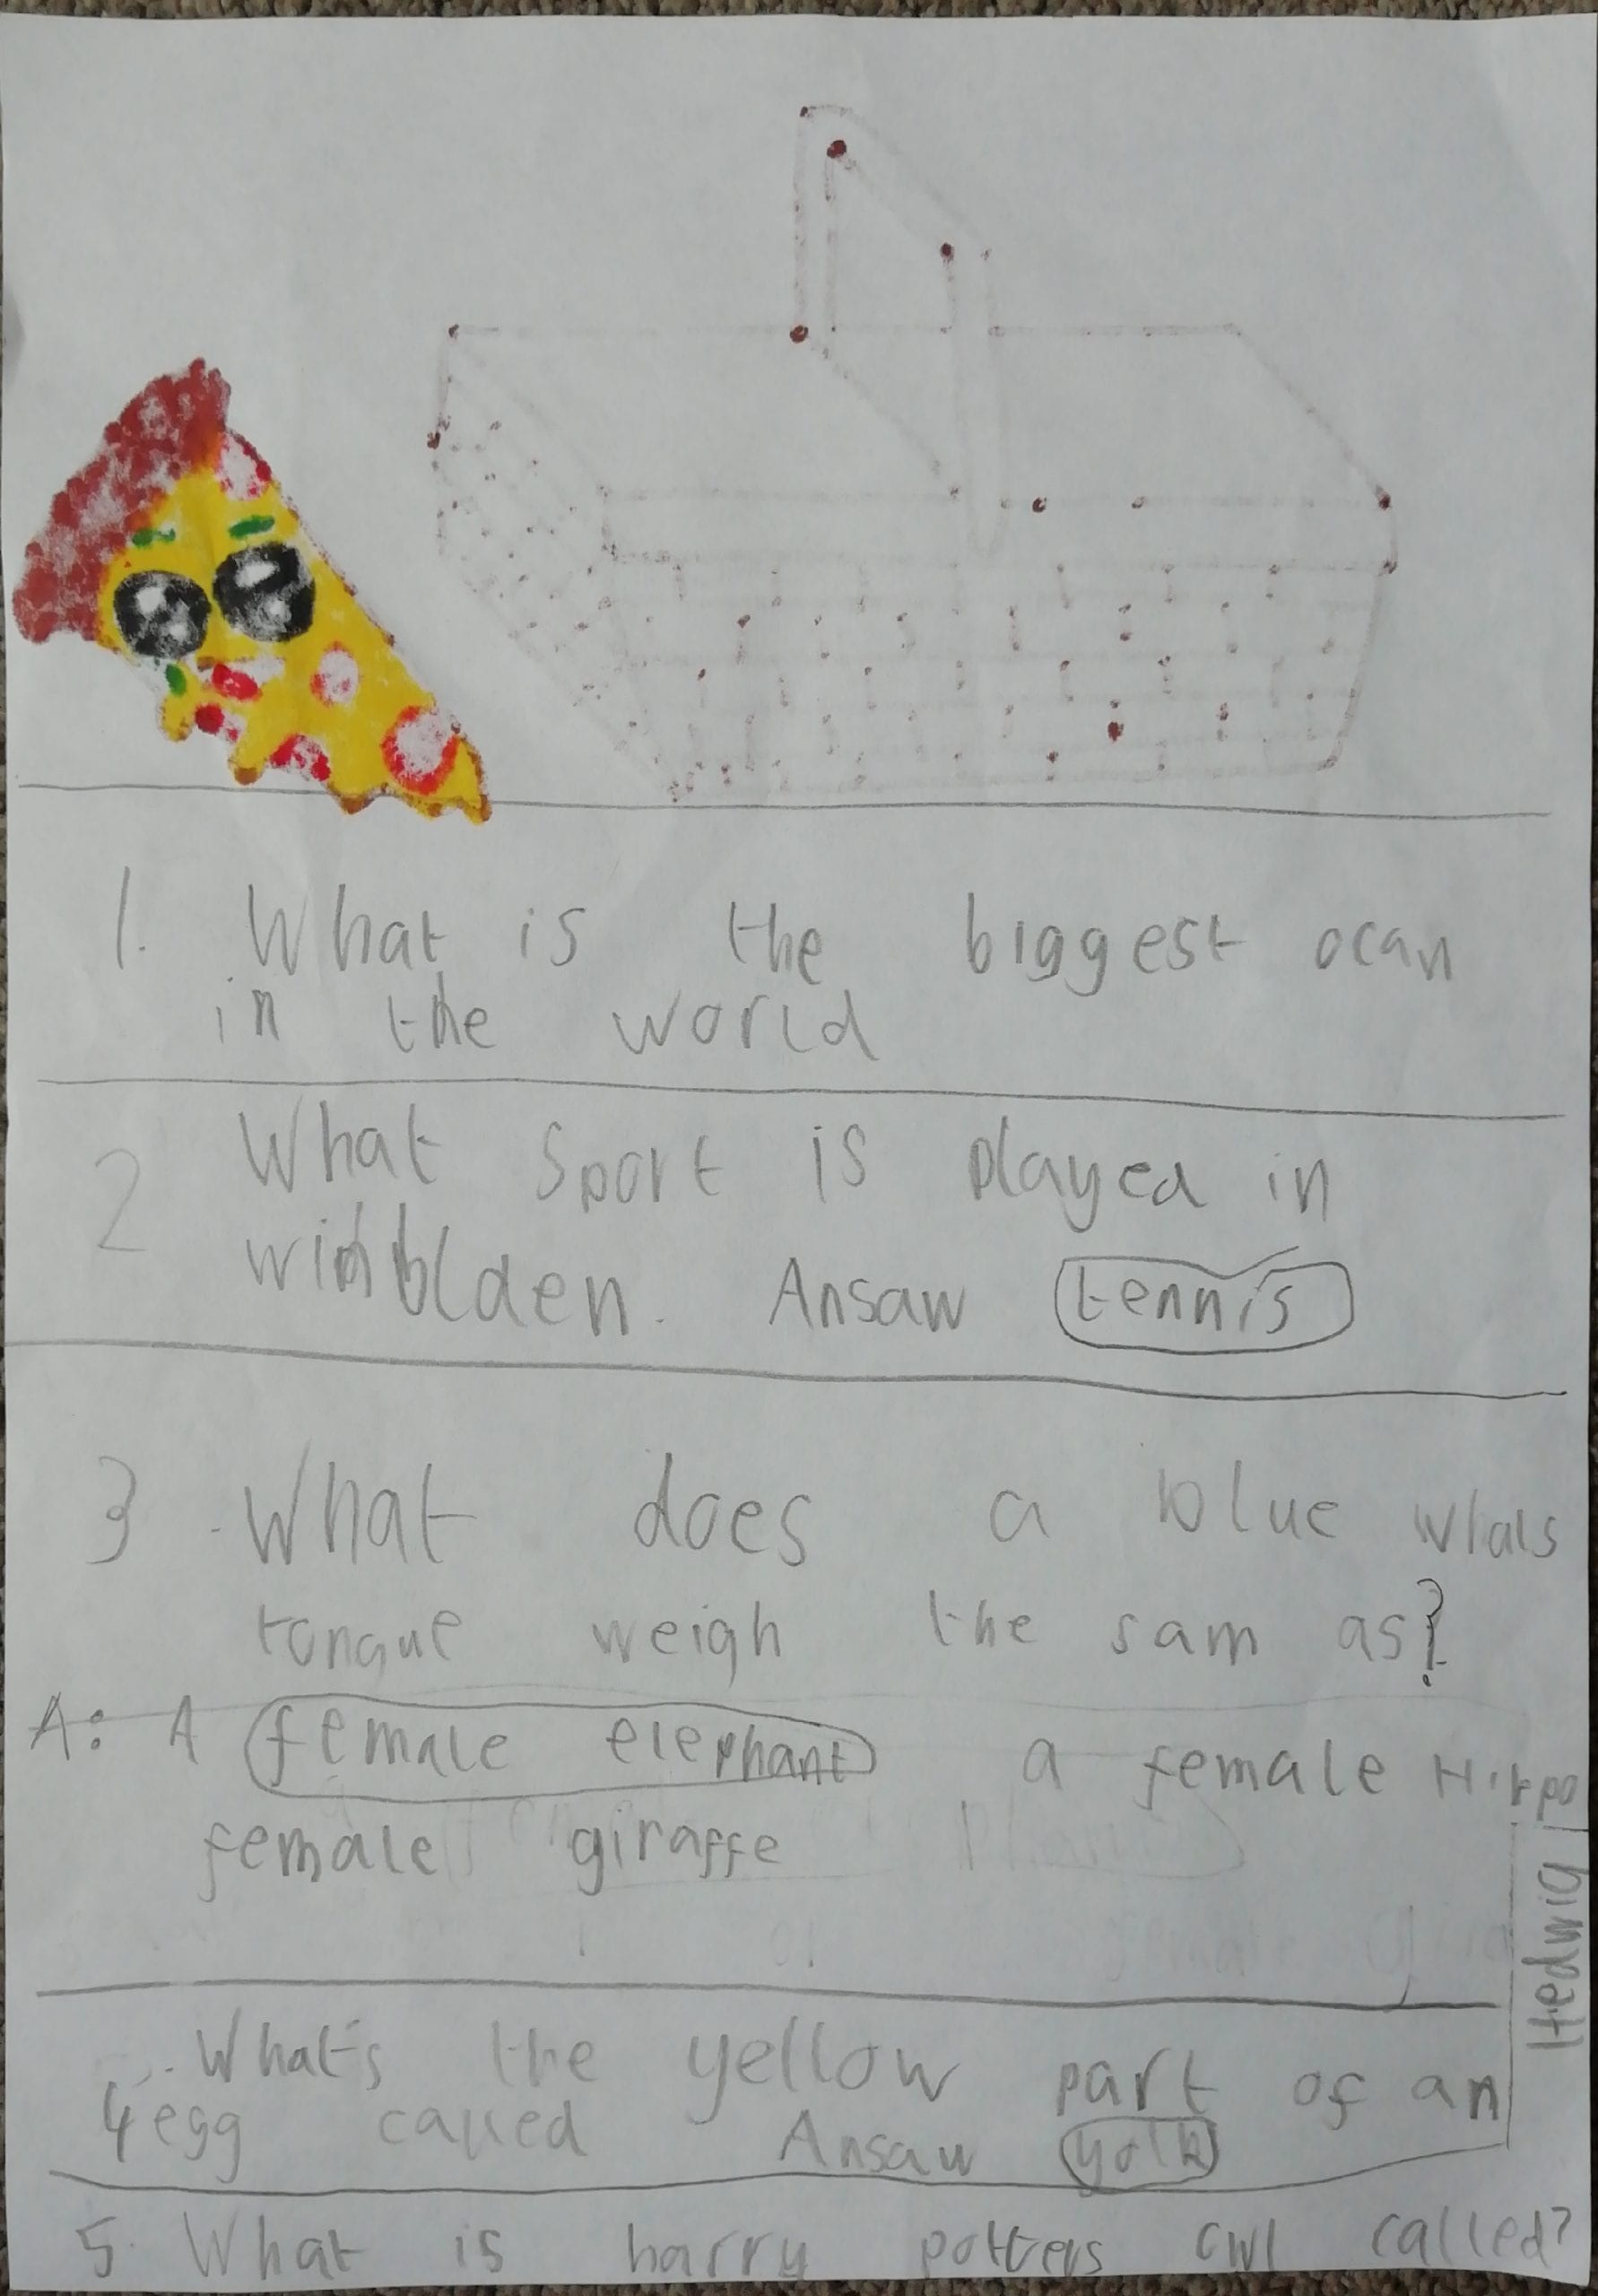 1. What is the biggest ocan
in the world
2 What sport is played in
wimblden. Ansaw tennis
3 What does a blue whals
tongue weigh the sam as?
A: A female elephant a female Hippo
female giraffe
4 What's the yellow part of an
egg called Ansaw yolk
5. What is harry potters owl called?
Hedwig